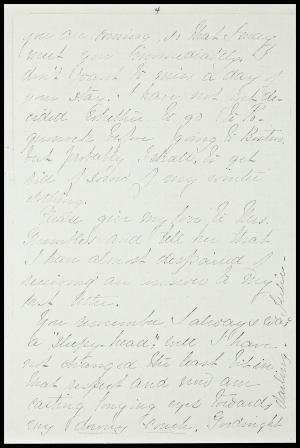 4
you are coming, so that I may
meet you immediately. I
don't want to miss a day of
your stay. I have not yet de-
cided whether to go to
before going to Boston,
but probably I shall, to get
rid of some of my winter
clothing.
Please give my love to Mrs.
and tell her that
I have almost despaired of
receiving an answer to my
last letter.
You remember I always was
a "sleepy-head," well I have
not changed the least bit in
that respect and now am
casting longing eyes towards
my downy couch. Goodnight
darling